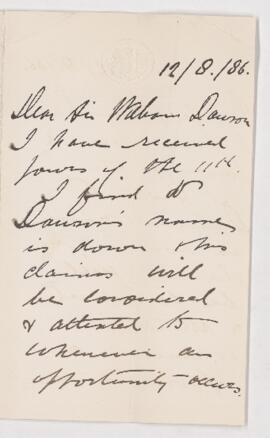 12/8/86.
Dear Sir William Dawson
I have received
yours of the 11th.
I find Dr
Dawson's name
is down & his
claims will
be considered
& attended to
whenever an
opportunity occurs.